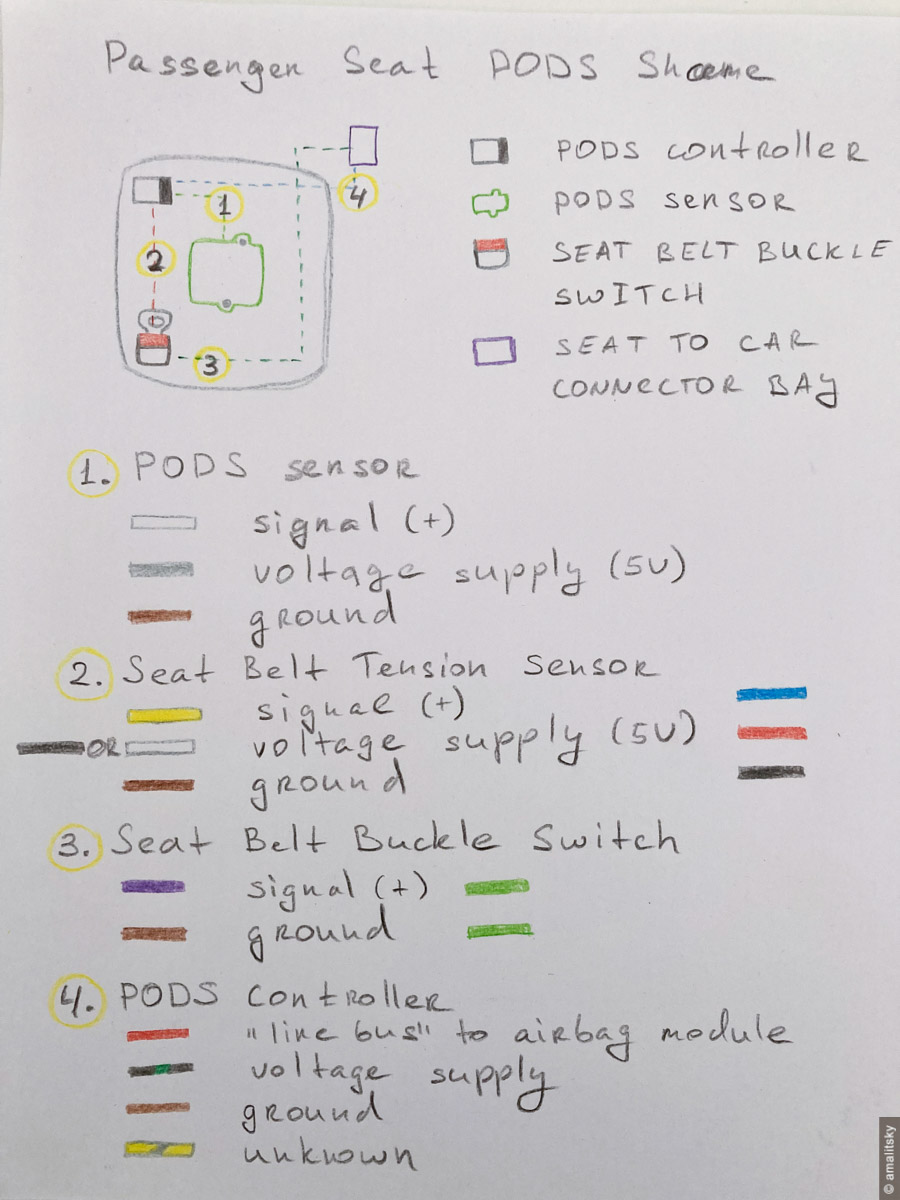 Passenger Seat PODS Sheme
PODS controller
PODS sensor
SEAT BELT BUCKLE
SWITCH
SEAT TO CAR
CONNECTOR BAY
1
4
2
3
1. PODS sensor
signal (+)
voltage supply (5V)
ground
2. Seat Belt Tension Sensor
signal (+)
OR voltage supply (5V)
ground
3. Seat Belt Buckle Switch
signal (+)
ground
4. PODS Controller
"line bus" to airbag module
voltage supply
ground
unknown
© amalitsky